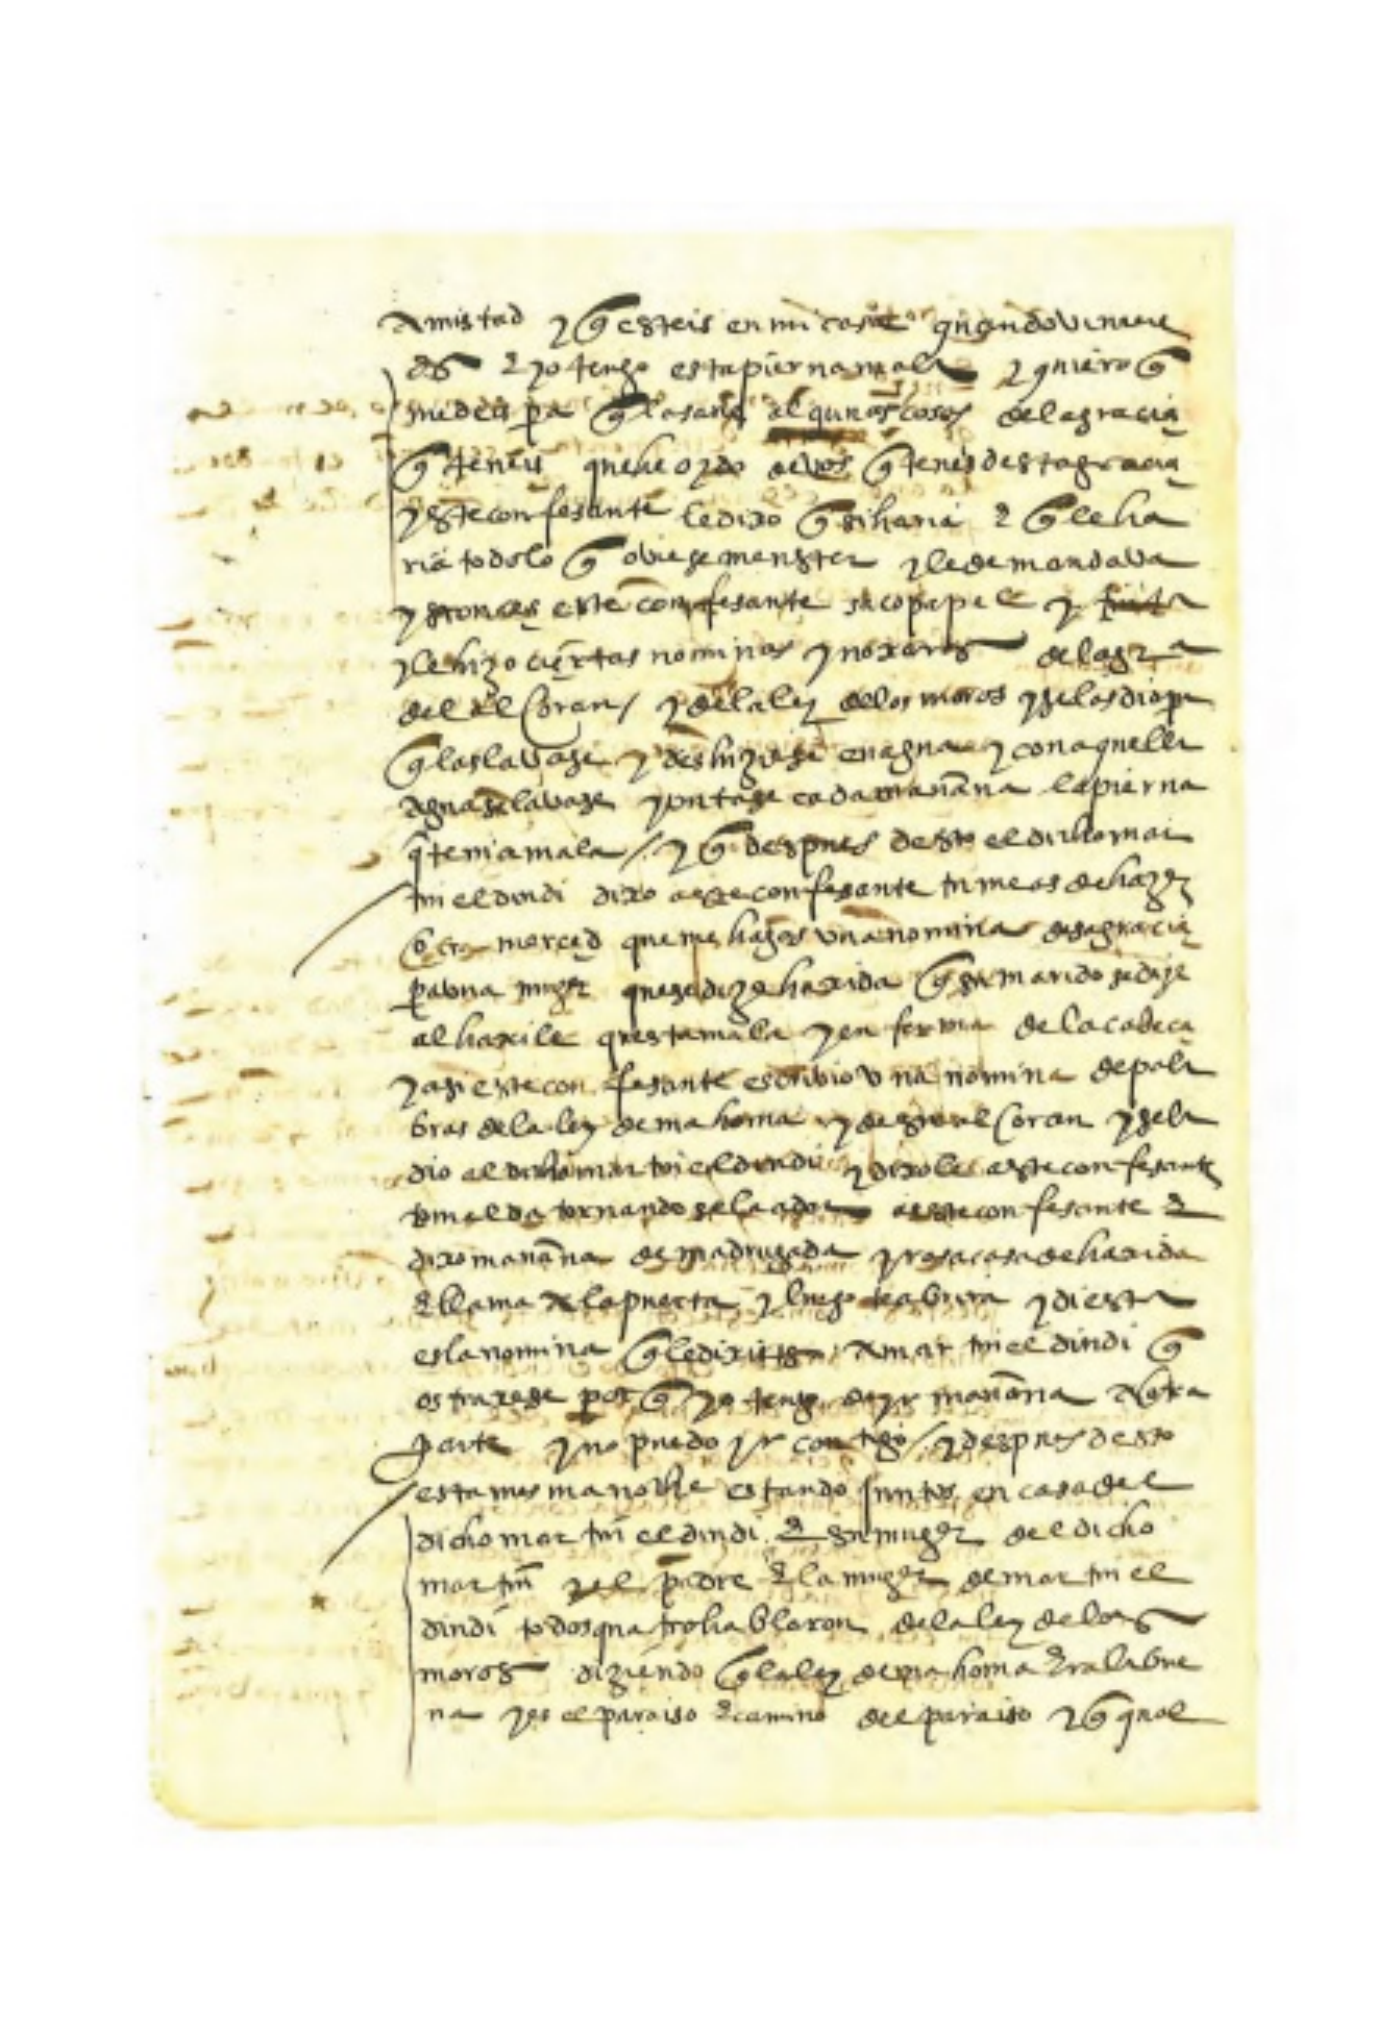 Amistad y q̃ esteis en mi casa quando vinie
des E yo tengo esta pierna mala y quiero q̃
me deis pa q̃ la sane algunas cosas de la gracia
q̃ teneis que he oydo de vos q̃ teneis desta gracia
y este confesante le dixo q̃ si haria E q̃ le ha
ria todo lo q̃ oviese menester y le demandava
y stonces este confesante saco papel y
y le hizo ciertas nominas de la
del alCoran / y de la ley de los moros y se las dio pa
q̃ las lavase y deshiziese en agua y con aquella
agua se lavase y untase cada manãna la pierna
q̃ tenia mala / y q̃ despues desto el dicho mar
tin el dindi dixo a este confesante tu me as de hazer
otra merced que me hagas una nomina desa gracia
pa una muger que se dize haxida q̃ su marido se dize
al haxile questa mala y enferma de la cabeça
y asi este confesante escribio una nomina de pala
bras de la ley de mahoma y de su alCoran y se la
dio al dicho martin el dindi y dixole a este confesante
tornandosela a dar a este confesante E
dixo manãna de madrugada yros a casa de haxida
E llama a la puerta y luego te abrira y di esta
es la nomina q̃ le a martin el dindi q̃
os traxese por q̃ yo tengo de yr manãna a otra
parte y no puedo yr contigo / y despues desto
esta mesma noche estando juntos en casa del
dicho martin el dindi E su muger del dicho
martin y el padre E la muger de martin el
dindi todos quatro hablaron de la ley de los
moros diziendo q̃ la ley de mahoma Era la bue
na y es el paraiso E camino del paraiso y q̃ qual